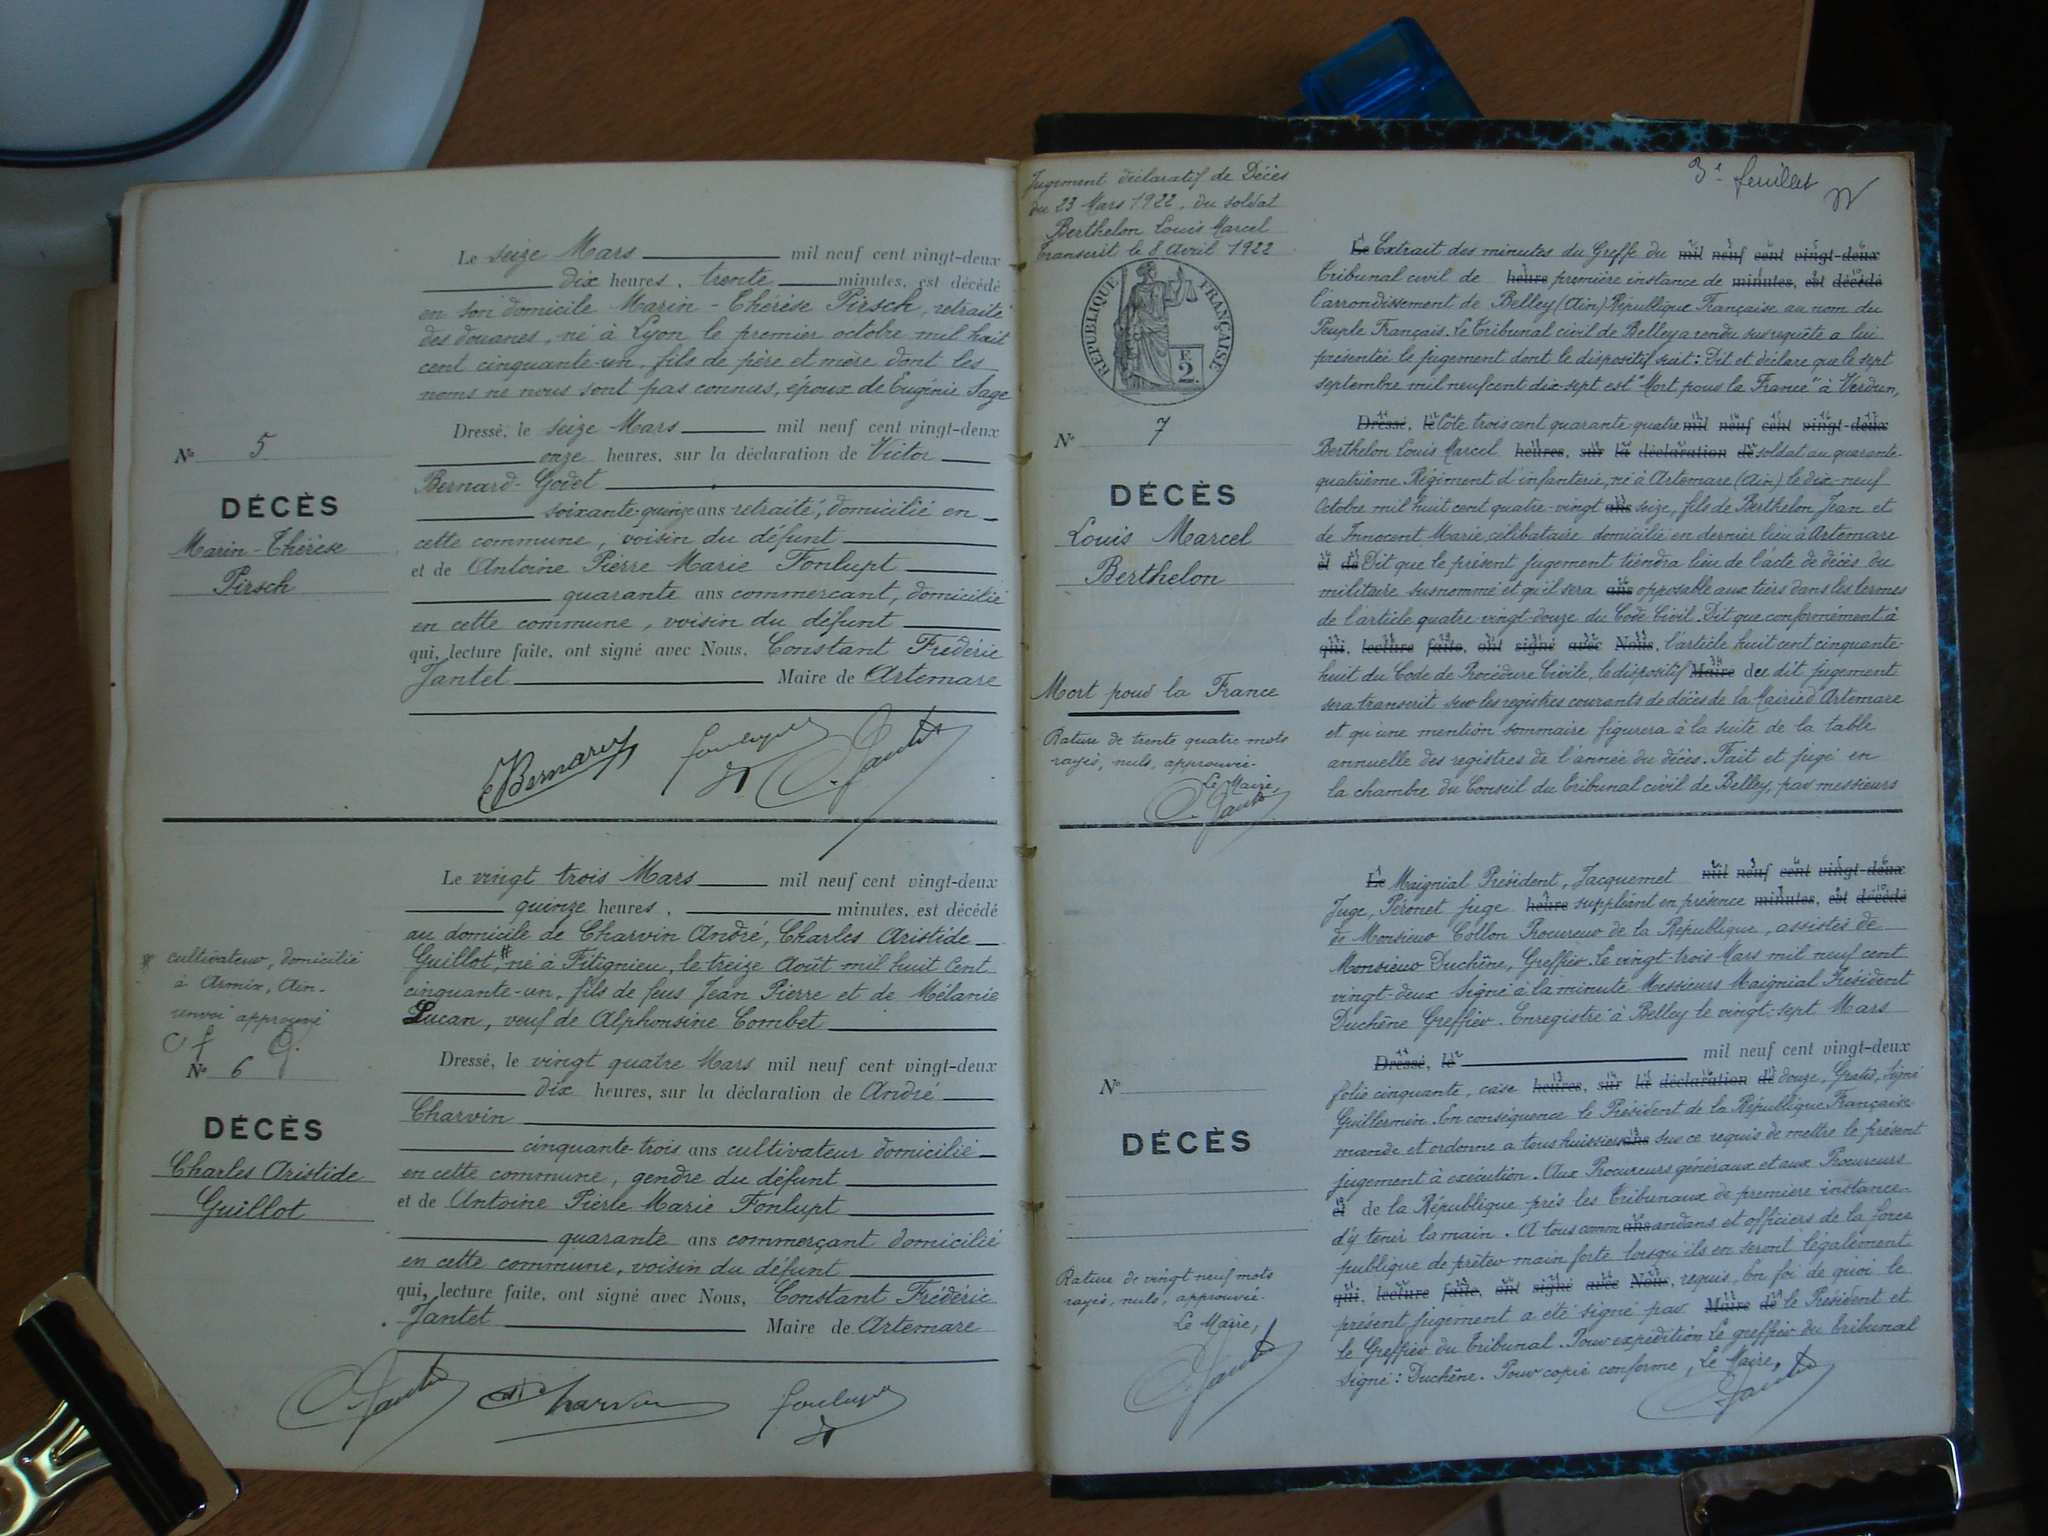 Le seize Mars mil neuf cent vingt-deux
dix heures, trente minutes, est décédé
en son domicile Marin-Thérèse Pirsch, retraité
des douanes, né à Lyon le premier octobre mil huit
cent cinquante-un, fils de père et mère dont les
noms ne nous sont pas connus, époux de Eugénie Sage
Dressé, le seize Mars mil neuf cent vingt-deux
onze heures, sur la déclaration de Victor
Bernard-Godet
soixante-quinze ans retraité, domicilié en
cette commune, voisin du défunt
et de Antoine Pierre Marie Fonlupt
quarante ans commerçant, domicilié
en cette commune, voisin du défunt
qui, lecture faite, ont signé avec Nous, Constant Frédéric
Jantet Maire de Artemare
N° 5
DÉCÈS
Marin-Thérèse
Pirsch
Bernard fonlupt C. Jantet
Le vingt trois Mars mil neuf cent vingt-deux
quinze heures, minutes, est décédé
au domicile de Charvin André, Charles Aristide
Guillot,# né à Fitignieu, le treize Août mil huit cent
cinquante-un, fils de feus Jean Pierre et de Mélanie
Lucan, veuf de Alphonsine Combet
Dressé, le vingt quatre Mars mil neuf cent vingt-deux
dix heures, sur la déclaration de André
Charvin
cinquante-trois ans cultivateur domicilié
en cette commune, gendre du défunt
et de Antoine Pierre Marie Fonlupt
quarante ans commerçant domicilié
en cette commune, voisin du défunt
qui, lecture faite, ont signé avec Nous, Constant Frédéric
Jantet Maire de Artemare
# cultivateur, domicilié
à Armix, Ain.
renvoi approuvé
N° 6
DÉCÈS
Charles Aristide
Guillot
C. Jantet Charvin fonlupt
3e feuillet
Jugement déclaratif de Décès
du 23 Mars 1922, du soldat
Berthelon Louis Marcel
Transcrit le 8 Avril 1922
RÉPUBLIQUE FRANÇAISE
F.
2.
N° 7
DÉCÈS
Louis Marcel
Berthelon
Mort pour la France
Rature de trente quatre mots
rayés, nuls, approuvée.
Le Maire,
C. Jantet
Le Extrait des minutes du Greffe du mil neuf cent vingt-deux
Tribunal civil de heure première instance de minutes, est décédé
l'arrondissement de Belley (Ain) République Française au nom du
Peuple Français. Le Tribunal civil de Belley a rendu sur requête a lui
présentée le jugement dont le dispositif suit : Dit et déclare que le sept
septembre mil neuf cent dix-sept est "Mort pour la France" à Verdun,
Dressé, le Côte trois cent quarante-quatre mil neuf cent vingt-deux
Berthelon Louis Marcel heures, sur la déclaration de soldat au quarante-
quatrième Régiment d'infanterie, né à Artemare (Ain) le dix-neuf
Octobre mil huit cent quatre-vingt ans seize, fils de Berthelon Jean et
de Innocent Marie, célibataire domicilié en dernier lieu à Artemare
et de Dit que le présent jugement tiendra lieu de l'acte de décès du
militaire susnommé et qu'il sera ans opposable aux tiers dans les termes
de l'article quatre vingt-douze du Code Civil. Dit que conformément à
qui, lecture faite, ont signé avec Nous, l'article huit cent cinquante-
huit du Code de Procédure Civile, le dispositif Maire de dit jugement
sera transcrit sur les registres courants de décès de la Mairie d'Artemare
et qu'une mention sommaire figurera à la suite de la table
annuelle des registres de l'année du décès. Fait et jugé en
la chambre du Conseil du Tribunal civil de Belley, par messieurs
Le Maignial Président, Jacquemet mil neuf cent vingt-deux
Juge, Péronet juge heure suppléant en présence minutes, est décédé
de Monsieur Collon Procureur de la République, assistés de
Monsieur Duchêne, Greffier. Le vingt-trois Mars mil neuf cent
vingt-deux Signé à la minute Messieurs Maignial Président
Duchêne Greffier. Enregistré à Belley le vingt-sept Mars
Dressé, le mil neuf cent vingt-deux
folio cinquante, case heures, sur la déclaration de douze, Gratis, Signé
Guillermin. En conséquence le Président de la République Française
mande et ordonne a tous huissiers ans sur ce requis de mettre le présent
jugement à exécution. Aux Procureurs généraux et aux Procureurs
et de la République près les Tribunaux de première instance
d'y tenir la main. A tous comm ans andans et officiers de la force
publique de prêter main forte lorsqu'ils en seront légalement
qui, lecture faite, ont signé avec Nous, requis. En foi de quoi le
présent jugement a été signé par Maire de le Président et
le Greffier du Tribunal. Pour expédition Le greffier du tribunal
Signé : Duchêne. Pour copie conforme, Le Maire,
C. Jantet
N°
DÉCÈS
Rature de vingt neuf mots
rayés, nuls, approuvée.
Le Maire,
C. Jantet